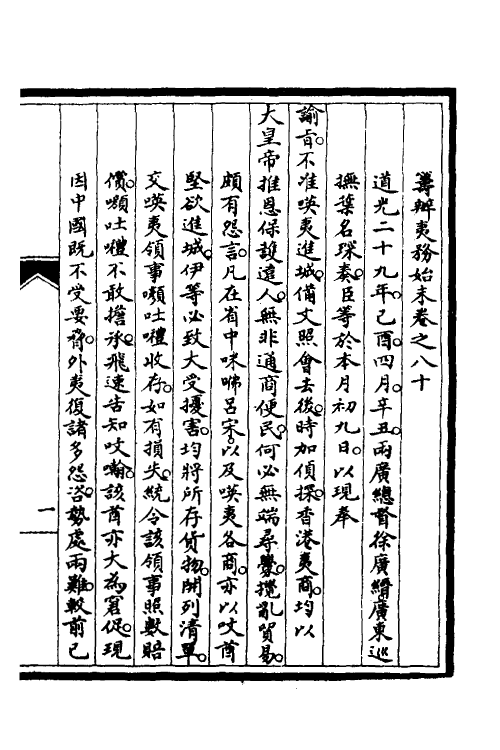 籌辦夷務始末卷之八十
道光二十九年。己酉四月。辛丑。兩廣總督徐廣縉廣東巡
撫葉名琛奏。臣等於本月初九日。以現奉
諭旨。不准㗲夷進城。備文照會去後。時加偵探。香港夷商。均以
大皇帝推恩保護遠人。無非通商便民。何必無端尋釁。攪亂貿易。
頗有怨言。凡在省中咪㖠呂宋。以及㗲夷各商。亦以㕭酋
堅欲進城。伊等必致大受擾害。均將所存貨物。開列清單。
交㗲夷領事嚬吐㘓收存。如有損失。統令該領事照數賠
償。嚬吐㘓不敢擔承。飛速告知㕭㘔。該酋亦大為窘促。現
因中國既不受要脅。外夷復諸多怨咨。勢處兩難。較前已
一